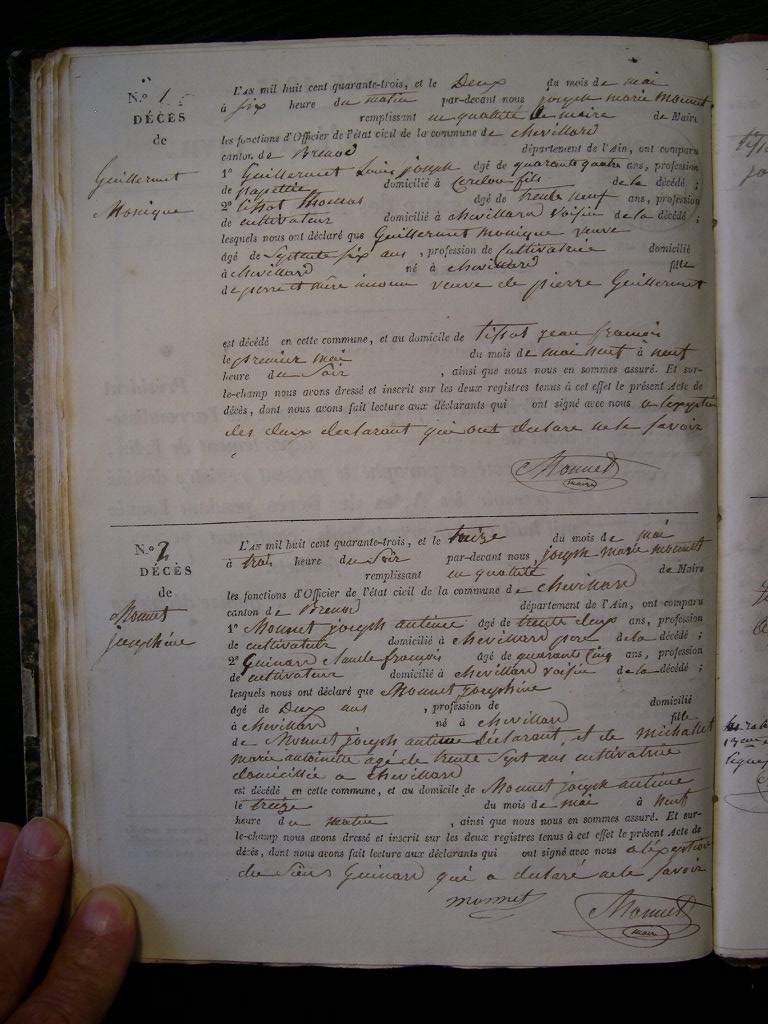 N.º 1
DÉCÈS
de
Guillermet
Monique
L'AN mil huit cent quarante-trois, et le Deux du mois de mai
à six heure du matin par-devant nous joseph marie Monnet
remplissant en qualité de maire de Maire
les fonctions d'Officier de l'état civil de la commune de chevillard
canton de Brenod département de l'Ain, ont comparu
1º Guillermet Louis joseph âgé de quarante quatre ans, profession
de domicilié à fils de la décédé ;
2º tissot thomas âgé de trente neuf ans, profession
de cultivateur domicilié à chevillard voisin de la décédé ;
lesquels nous ont déclaré que Guillermet monique veuve
âgé de Septente six ans , profession de Cultivatrie domicilié
à chevillard né à chevillard fille
de perre et mère inconu veuve de pierre Guillermet
est décédé en cette commune, et au domicile de tissot jean françois
le premier mai du mois de mai neuf à neuf
heure du Soir , ainsi que nous nous en sommes assuré. Et sur-
le-champ nous avons dressé et inscrit sur les deux registres tenus à cet effet le présent Acte de
décès, dont nous avons fait lecture aux déclarants qui ont signé avec nous a lexeption
des deux declarant qui ont declare ne le savoir
Monnet
maire
N.º 2
DÉCÈS
de
Monnet
josephine
L'AN mil huit cent quarante-trois, et le treize du mois de mai
à trois heure du Soir par-devant nous joseph marie monnet
remplissant en qualité de Maire
les fonctions d'Officier de l'état civil de la commune de chevillard
canton de Brenod département de l'Ain, ont comparu
1º Monnet joseph antime âgé de trente deux ans, profession
de cultivateur domicilié à chevillard pere de la décédé ;
2º Guinard claude françois âgé de quarante cinq ans, profession
de cultivateur domicilié à chevillard voisin de la décédé ;
lesquels nous ont déclaré que Monnet josephine
âgé de Deux ans , profession de domicilié
à chevillard né à chevillard fille
de Monnet joseph antime déclarant, et de michallet
marie antoinette agé de trente Sept ans cultivatrie
domicilié a chevillard
est décédé en cette commune, et au domicile de Monnet joseph antime
le treize du mois de mai à neuf
heure du matin , ainsi que nous nous en sommes assuré. Et sur-
le-champ nous avons dressé et inscrit sur les deux registres tenus à cet effet le présent Acte de
décès, dont nous avons fait lecture aux déclarants qui ont signé avec nous a l'exeption
du Sieur Guinard qui a declaré ne le savoir
monnet
Monnet
maire